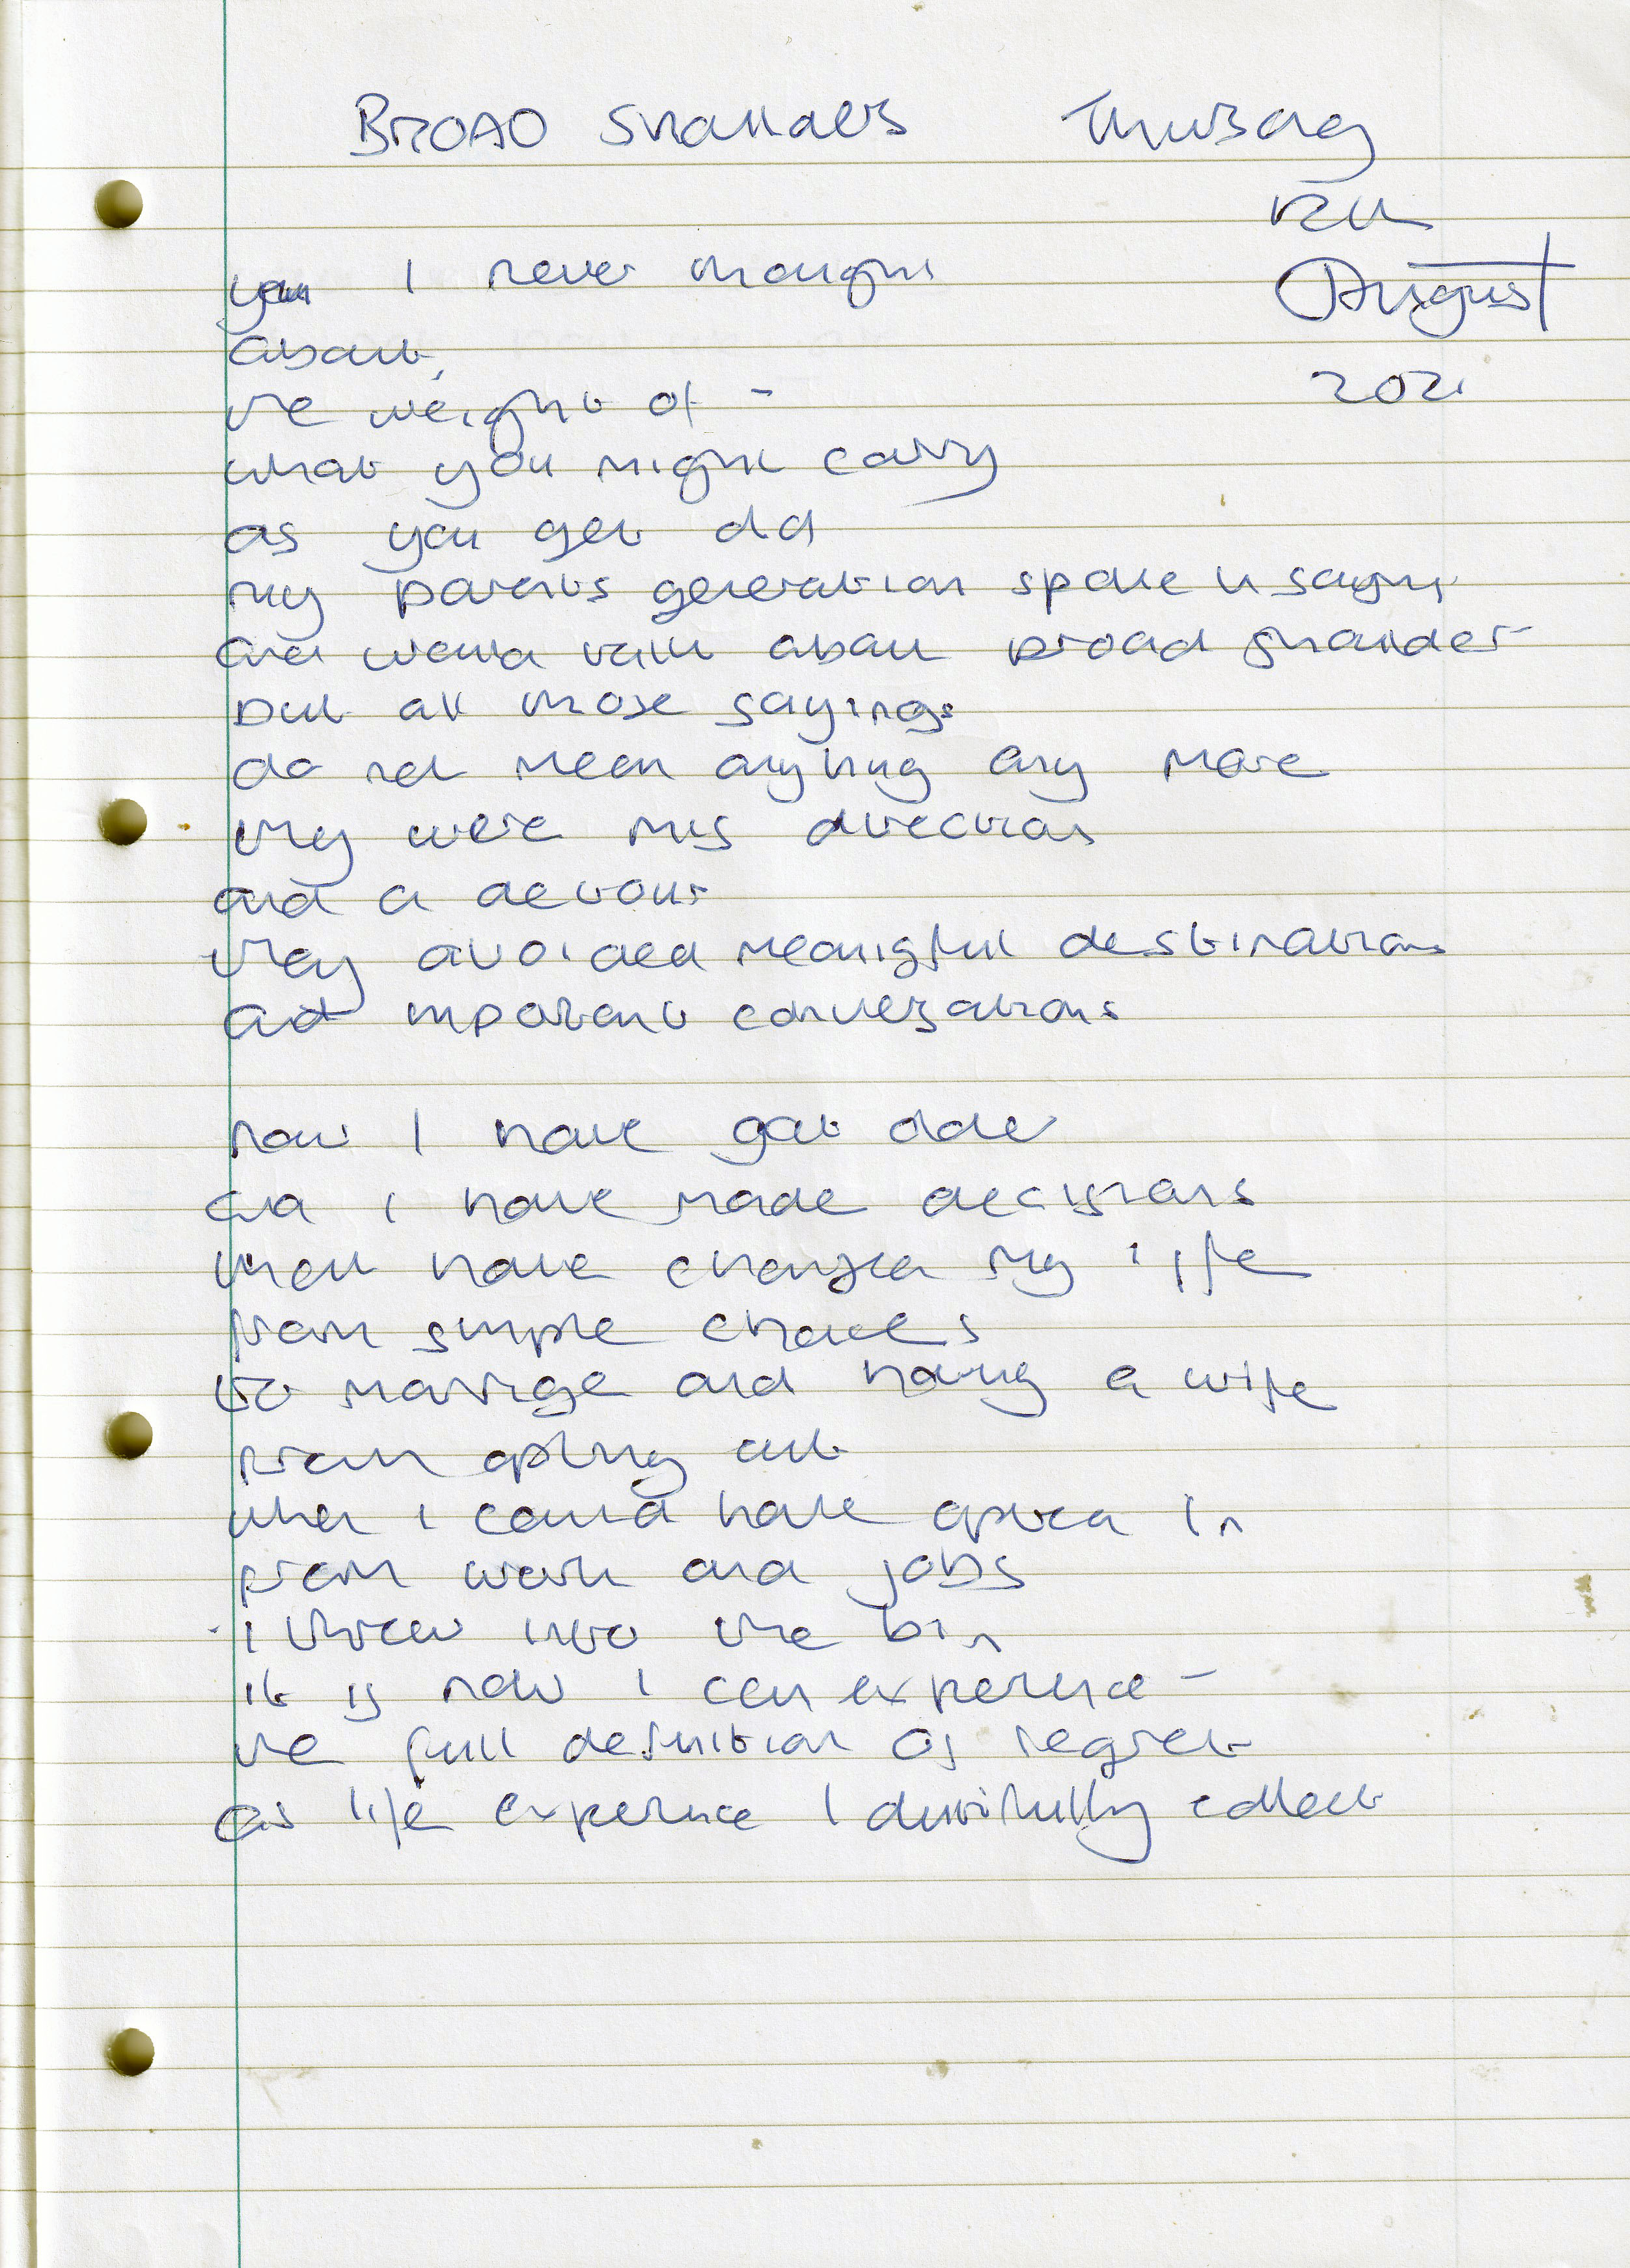 BROAD Shoulders Thursday
12th
August
2021
I never thought
about
the weight of -
what you might carry
as you get old
my parents generation spoke in sayings
and would talk about broad shoulders
but all those sayings
do not mean anything any more
they were mis directions
and a detour
they avoided meaningful destinations
and important conversations
now I have got older
and I have made decisions
that have changed my life
from simple choices
to marrige and having a wife
from opting out
when I could have opted in
from work and jobs
I threw into the bin
it is now I can experience -
the full definition of regret
as life experience I dutifully collect